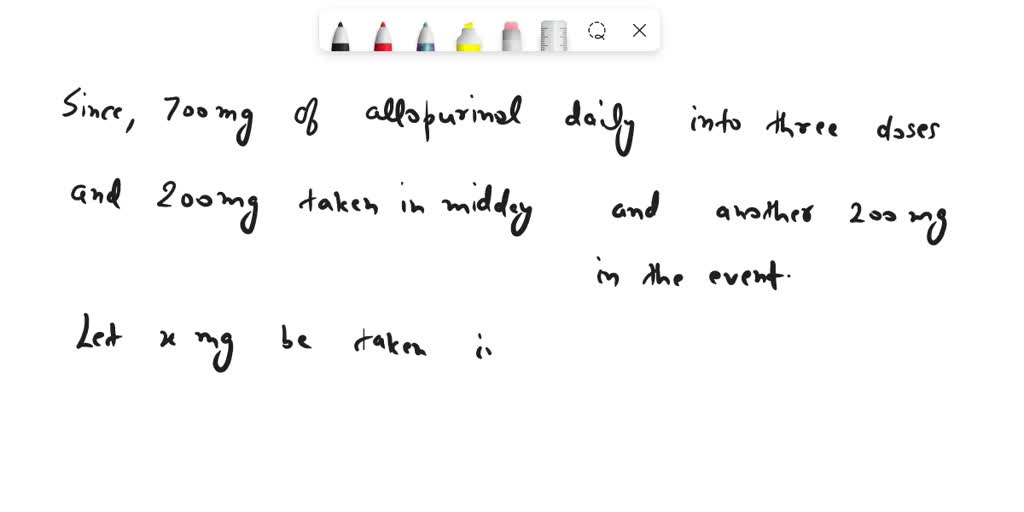 Since, 700mg of allopurinol daily into three doses
and 200mg taken in midday and another 200 mg
in the event.
Let x mg be taken i